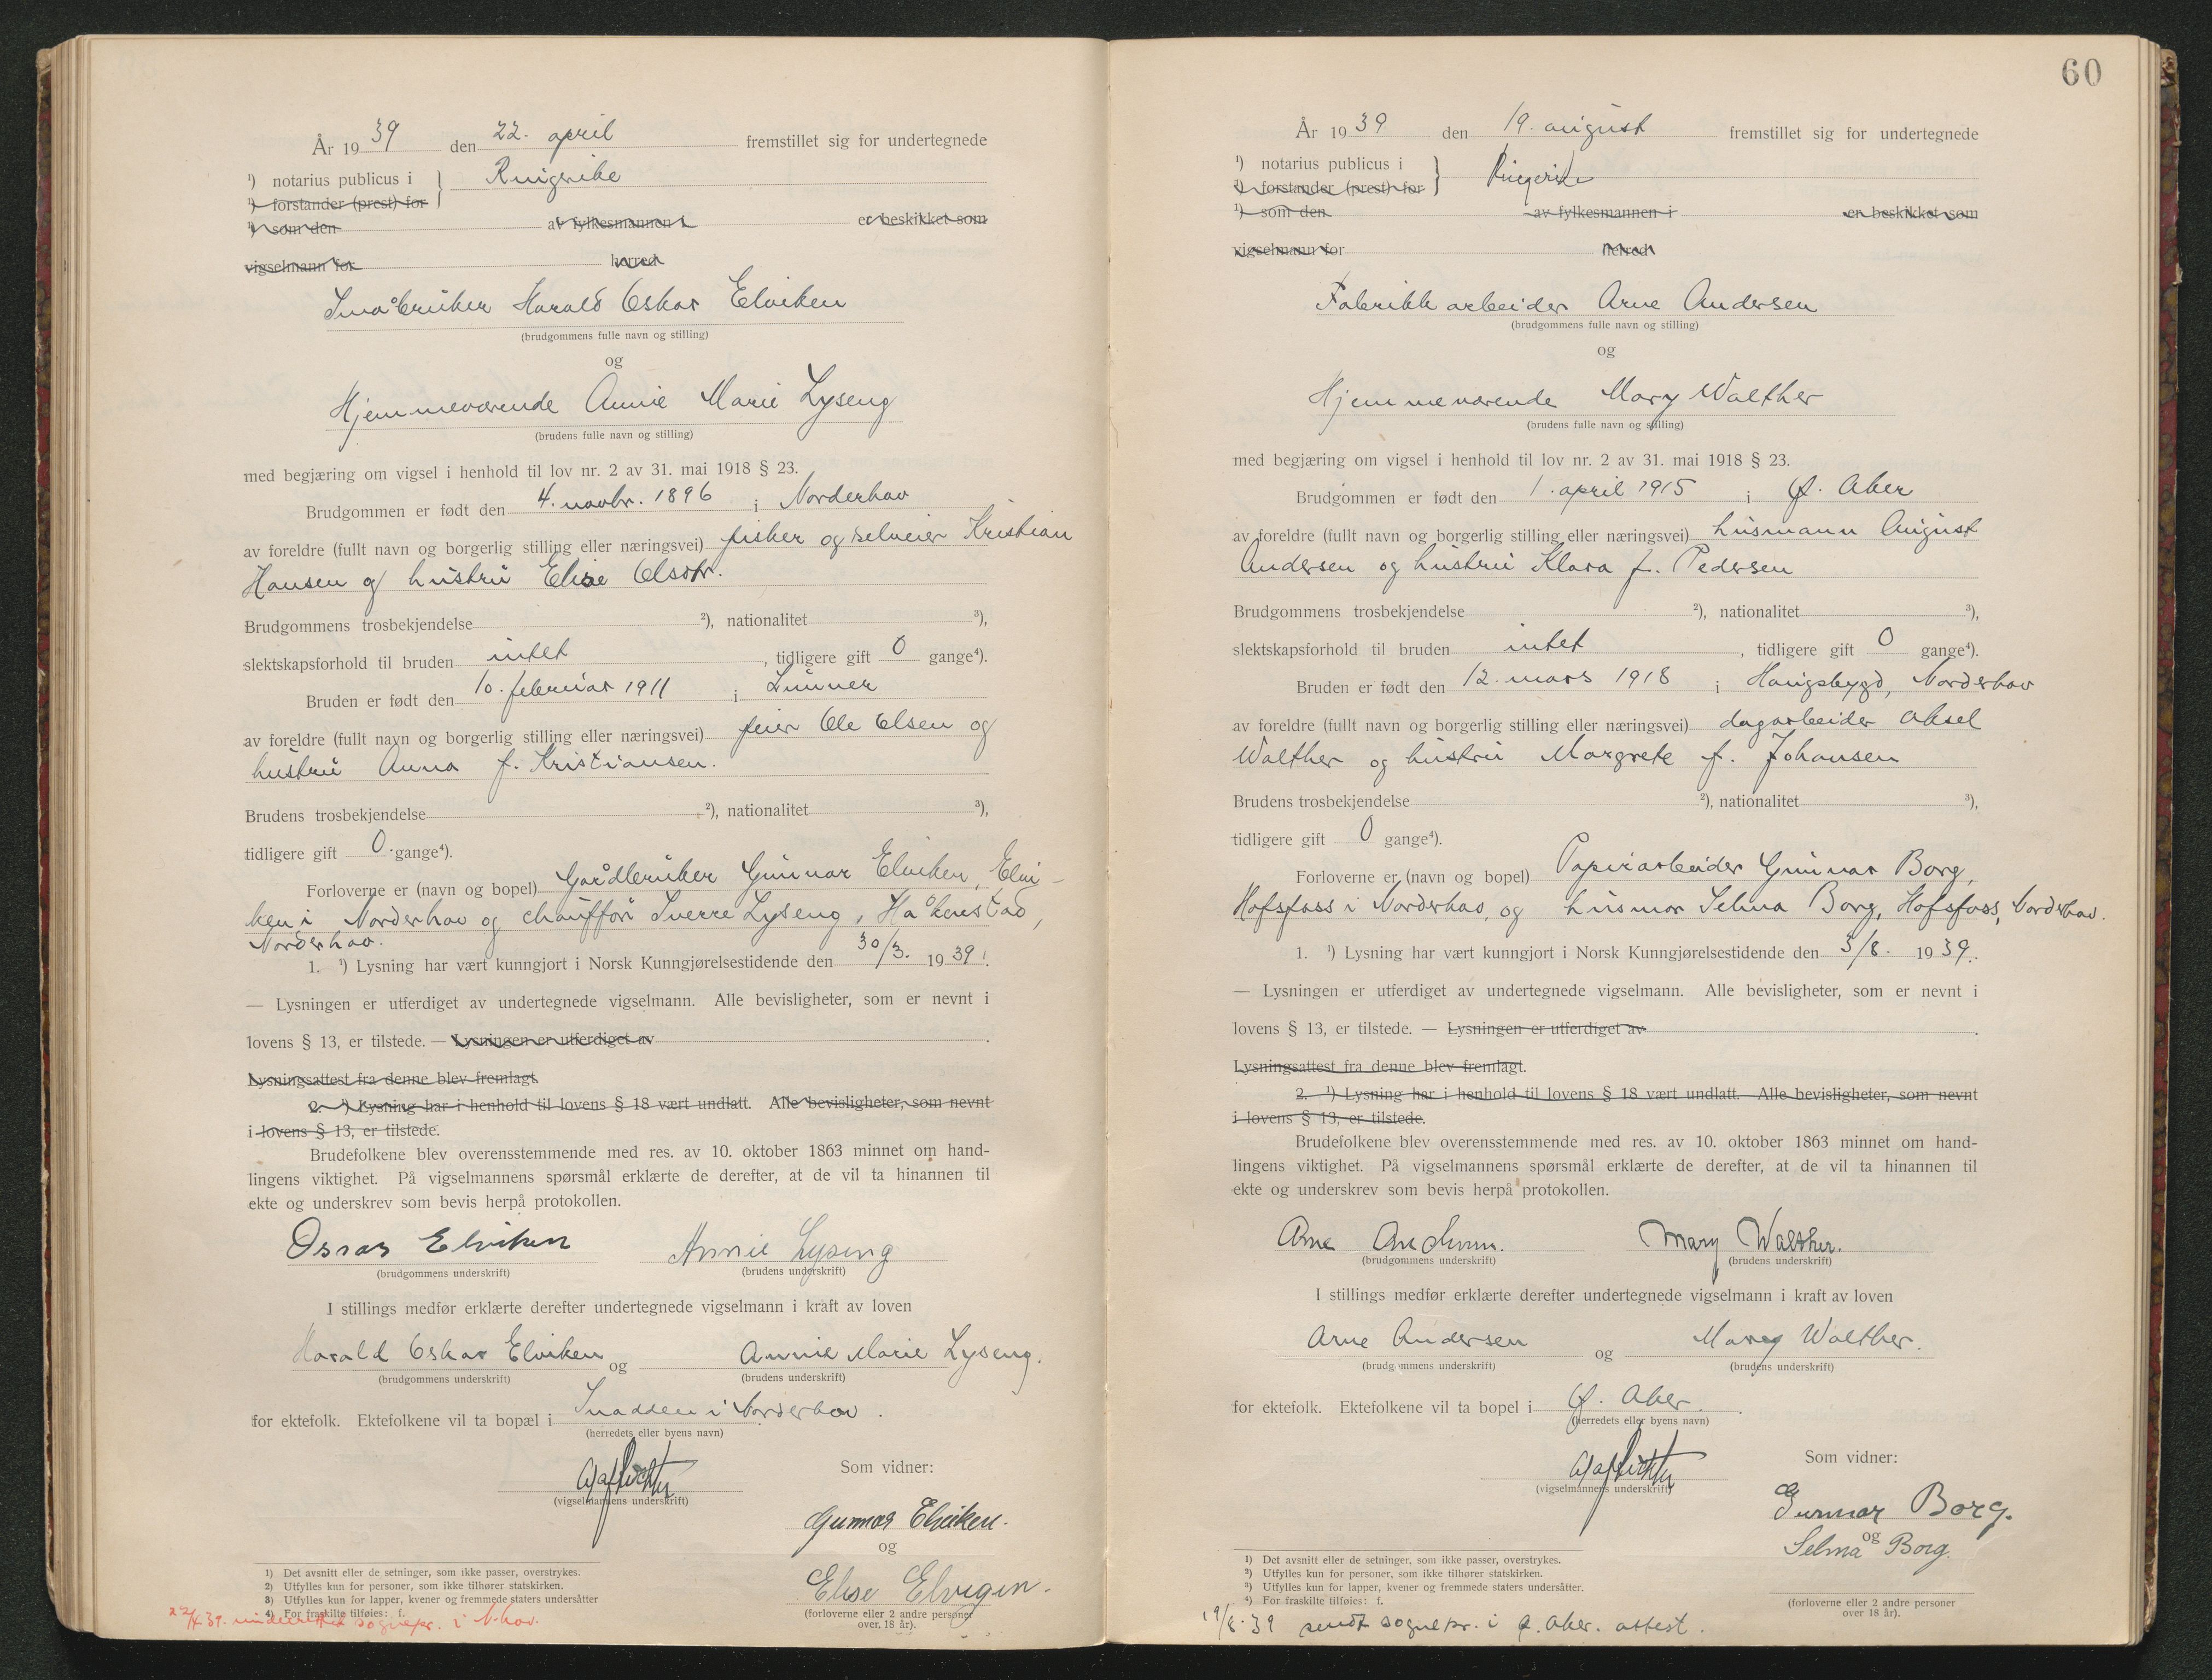 År 19 39 den 22. april fremstillet sig for undertegnede
¹) notarius publicus i } Ringerike
¹) forstander (prest) for
¹) som den av fylkesmannen i er beskikket som
vigselmann for herred
Småbruker Harald Oskar Elviken
(brudgommens fulle navn og stilling)
og
Hjemmeværende Annie Marie Lyseng
(brudens fulle navn og stilling)
med begjæring om vigsel i henhold til lov nr. 2 av 31. mai 1918 § 23.
Brudgommen er født den 4. novbr. 1896 i Norderhov
av foreldre (fullt navn og borgerlig stilling eller næringsvei) fisker og selveier Kristian
Hansen og hustru Elise Olsdtr.
Brudgommens trosbekjendelse ²), nationalitet ³),
slektskapsforhold til bruden intet , tidligere gift 0 gange⁴).
Bruden er født den 10. februar 1911 i Lunner
av foreldre (fullt navn og borgerlig stilling eller næringsvei) feier Ole Olsen og
hustru Anna f. Kristiansen.
Brudens trosbekjendelse ²), nationalitet ³),
tidligere gift 0 gange⁴).
Forloverne er (navn og bopel) Gårdbruker Gunnar Elviken, Elvi-
ken i Norderhov og chauffør Sverre Lyseng, Håkenstad,
Norderhov.
1. ¹) Lysning har vært kunngjort i Norsk Kunngjørelsestidende den 30/3. 19 39.
— Lysningen er utferdiget av undertegnede vigselmann. Alle bevisligheter, som er nevnt i
lovens § 13, er tilstede. — Lysningen er utferdiget av .
Lysningsattest fra denne blev fremlagt.
2. ¹) Lysning har i henhold til lovens § 18 vært undlatt. Alle bevisligheter, som nevnt
i lovens § 13, er tilstede.
Brudefolkene blev overensstemmende med res. av 10. oktober 1863 minnet om hand-
lingens viktighet. På vigselmannens spørsmål erklærte de derefter, at de vil ta hinannen til
ekte og underskrev som bevis herpå protokollen.
Oskar Elviken Annie Lyseng
(brudgommens underskrift) (brudens underskrift)
I stillings medfør erklærte derefter undertegnede vigselmann i kraft av loven
Harald Oskar Elviken og Annie Marie Lyseng.
(brudgommens underskrift) (brudens underskrift)
for ektefolk. Ektefolkene vil ta bopæl i Snadden i Norderhov.
(herredets eller byens navn)
Som vidner:
(vigselmannens underskrift)
Gunnar Elviken.
og
Elise Elvigen.
(forloverne eller 2 andre personer
over 18 år).
1) Det avsnitt eller de setninger, som ikke passer, overstrykes.
2) Utfylles kun for personer, som ikke tilhører statskirken.
3) Utfylles kun for lapper, kvener og fremmede staters undersåtter
4) For fraskilte tilføies: f.
22/4.39. underrettet sognepr. i N.hov.
60
År 19 39 den 19. august fremstillet sig for undertegnede
¹) notarius publicus i } Ringerike
¹) forstander (prest) for
¹) som den av fylkesmannen i er beskikket som
vigselmann for herred
Fabrikkarbeider Arne Andersen
(brudgommens fulle navn og stilling)
og
Hjemmeværende Mary Walther
(brudens fulle navn og stilling)
med begjæring om vigsel i henhold til lov nr. 2 av 31. mai 1918 § 23.
Brudgommen er født den 1. april 1915 i Ø. Aker
av foreldre (fullt navn og borgerlig stilling eller næringsvei) husmann August
Andersen og hustru Klara f. Pedersen
Brudgommens trosbekjendelse ²), nationalitet ³),
slektskapsforhold til bruden intet , tidligere gift 0 gange⁴).
Bruden er født den 12. mars 1918 i Haugsbygd, Norderhov
av foreldre (fullt navn og borgerlig stilling eller næringsvei) dagarbeider Aksel
Walther og hustru Margrete f. Johansen
Brudens trosbekjendelse ²), nationalitet ³),
tidligere gift 0 gange⁴).
Forloverne er (navn og bopel) Papirarbeider Gunnar Borg,
Hofsfoss i Norderhov, og husmor Selma Borg, Hofsfoss, Norderhov.
1. ¹) Lysning har vært kunngjort i Norsk Kunngjørelsestidende den 3/8. 19 39.
— Lysningen er utferdiget av undertegnede vigselmann. Alle bevisligheter, som er nevnt i
lovens § 13, er tilstede. — Lysningen er utferdiget av .
Lysningsattest fra denne blev fremlagt.
2. ¹) Lysning har i henhold til lovens § 18 vært undlatt. Alle bevisligheter, som nevnt
i lovens § 13, er tilstede.
Brudefolkene blev overensstemmende med res. av 10. oktober 1863 minnet om hand-
lingens viktighet. På vigselmannens spørsmål erklærte de derefter, at de vil ta hinannen til
ekte og underskrev som bevis herpå protokollen.
Arne Andersen. Mary Walther.
(brudgommens underskrift) (brudens underskrift)
I stillings medfør erklærte derefter undertegnede vigselmann i kraft av loven
Arne Andersen og Mary Walther.
(brudgommens underskrift) (brudens underskrift)
for ektefolk. Ektefolkene vil ta bopel i Ø. Aker.
(herredets eller byens navn)
Som vidner:
(vigselmannens underskrift)
Gunnar Borg.
og
Selma Borg.
(forloverne eller 2 andre personer
over 18 år).
1) Det avsnitt eller de setninger, som ikke passer, overstrykes.
2) Utfylles kun for personer, som ikke tilhører statskirken.
3) Utfylles kun for lapper, kvener og fremmede staters undersåtter.
4) For fraskilte tilføies: f.
19/8.39 sendt sognepr. i Ø. Aker. attest.